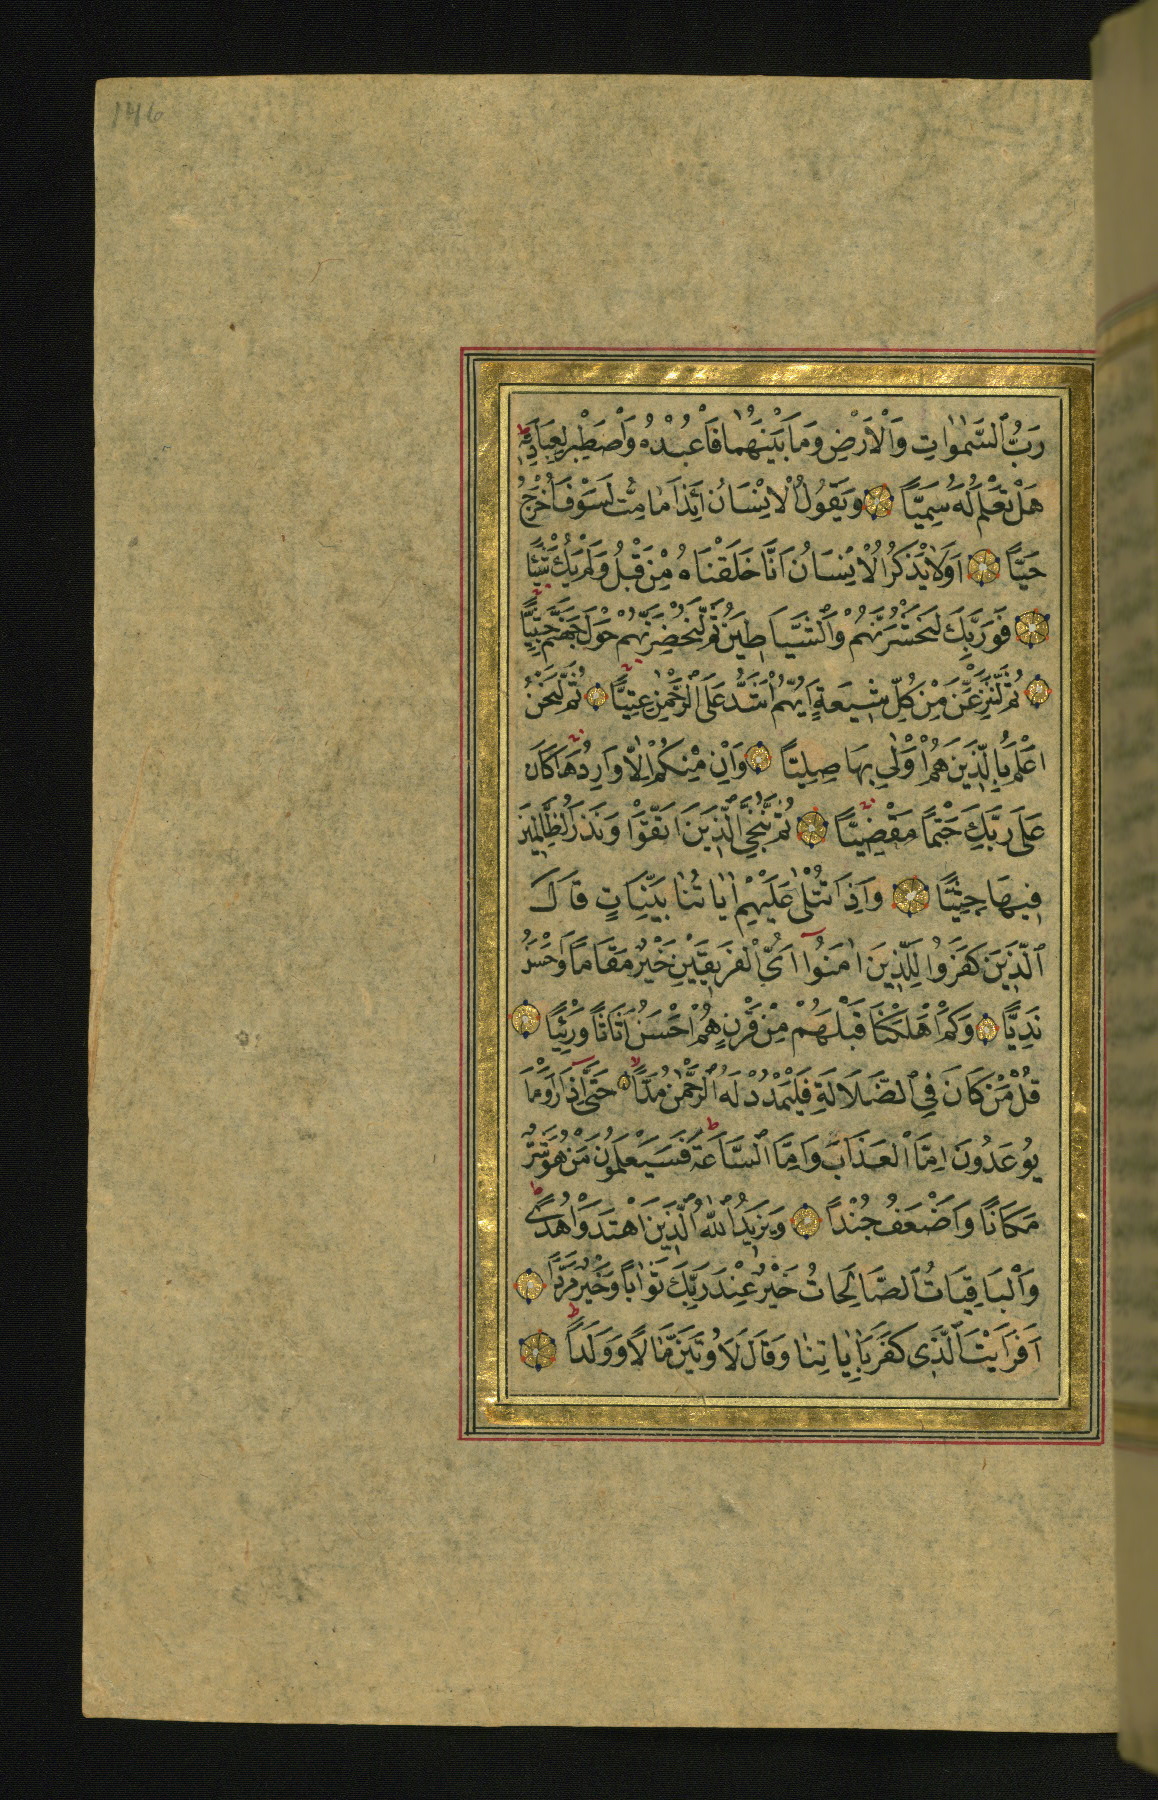 146
رَبُّ ٱلسَّمٰوٰاتِ وَٱلْاَرْضِ وَمَا بَيْنَهُمٰا فَاعْبُدْهُ وَٱصْطَبِرْ لِعِبَادَتِهِ ط
هَلْ تَعْلَمُ لَهُ سَمِيّاً وَيَقُولُ ٱلْاِنْسَانُ اَئِذَا مَا مِتُّ لَسَوْفَ اُخْرَجُ
حَيّاً اَوَلَا يَذْكُرُ ٱلْاِنْسَانُ اَنَّا خَلَقْنَاهُ مِنْ قَبْلُ وَلَمْ يَكُ شَيْئاً
فَوَرَبِّكَ لَنَحْشُرَنَّهُمْ وَٱلشَّيَاطِينَ ثُمَّ لَنُحْضِرَنَّهُمْ حَوْلَ جَهَنَّمَ جِثِيّاً
ثُمَّ لَنَنْزِعَنَّ مِنْ كُلِّ شِيعَةٍ اَيُّهُمْ اَشَدُّ عَلَى ٱلرَّحْمٰنِ عِتِيّاً ثُمَّ لَنَحْنُ
اَعْلَمُ بِالَّذِينَ هُمْ اَوْلٰى بِهَا صِلِيّاً وَاِنْ مِنْكُمْ اِلَّا وَارِدُهَا كَانَ
عَلٰى رَبِّكَ حَتْماً مَقْضِيّاً ثُمَّ نُنَجِّي ٱلَّذِينَ اتَّقَوْا وَنَذَرُ ٱلظَّالِمِينَ
فِيهَا جِثِيّاً وَاِذَا تُتْلٰى عَلَيْهِمْ اٰيَاتُنٰا بَيِّنَاتٍ قَالَ
ٱلَّذِينَ كَفَرُوا لِلَّذِينَ اٰمَنُوٓا اَيُّ ٱلْفَرِيقَيْنِ خَيْرٌ مَقَاماً وَاَحْسَنُ
نَدِيّاً وَكَمْ اَهْلَكْنَا قَبْلَهُمْ مِنْ قَرْنٍ هُمْ اَحْسَنُ اَثَاثاً وَرِئْياً
قُلْ مَنْ كَانَ فِي ٱلضَّلَالَةِ فَلْيَمْدُدْ لَهُ ٱلرَّحْمٰنُ مَدّاً حَتّٰٓى اِذَا رَاَوْا مَا
يُوعَدُونَ اِمَّا ٱلْعَذَابَ وَاِمَّا ٱلسَّاعَةَ ط فَسَيَعْلَمُونَ مَنْ هُوَ شَرٌّ
مَكَانًا وَاَضْعَفُ جُنْداً وَيَزِيدُ ٱللّٰهُ ٱلَّذِينَ اهْتَدَوْا هُدًى ط
وَٱلْبَاقِيَاتُ ٱلصَّالِحَاتُ خَيْرٌ عِنْدَ رَبِّكَ ثَوٰاباً وَخَيْرٌ مَرَدّاً
اَفَرَاَيْتَ ٱلَّذِي كَفَرَ بِاٰيَاتِنٰا وَقَالَ لَاُوتَيَنَّ مَالًا وَوَلَداً ط